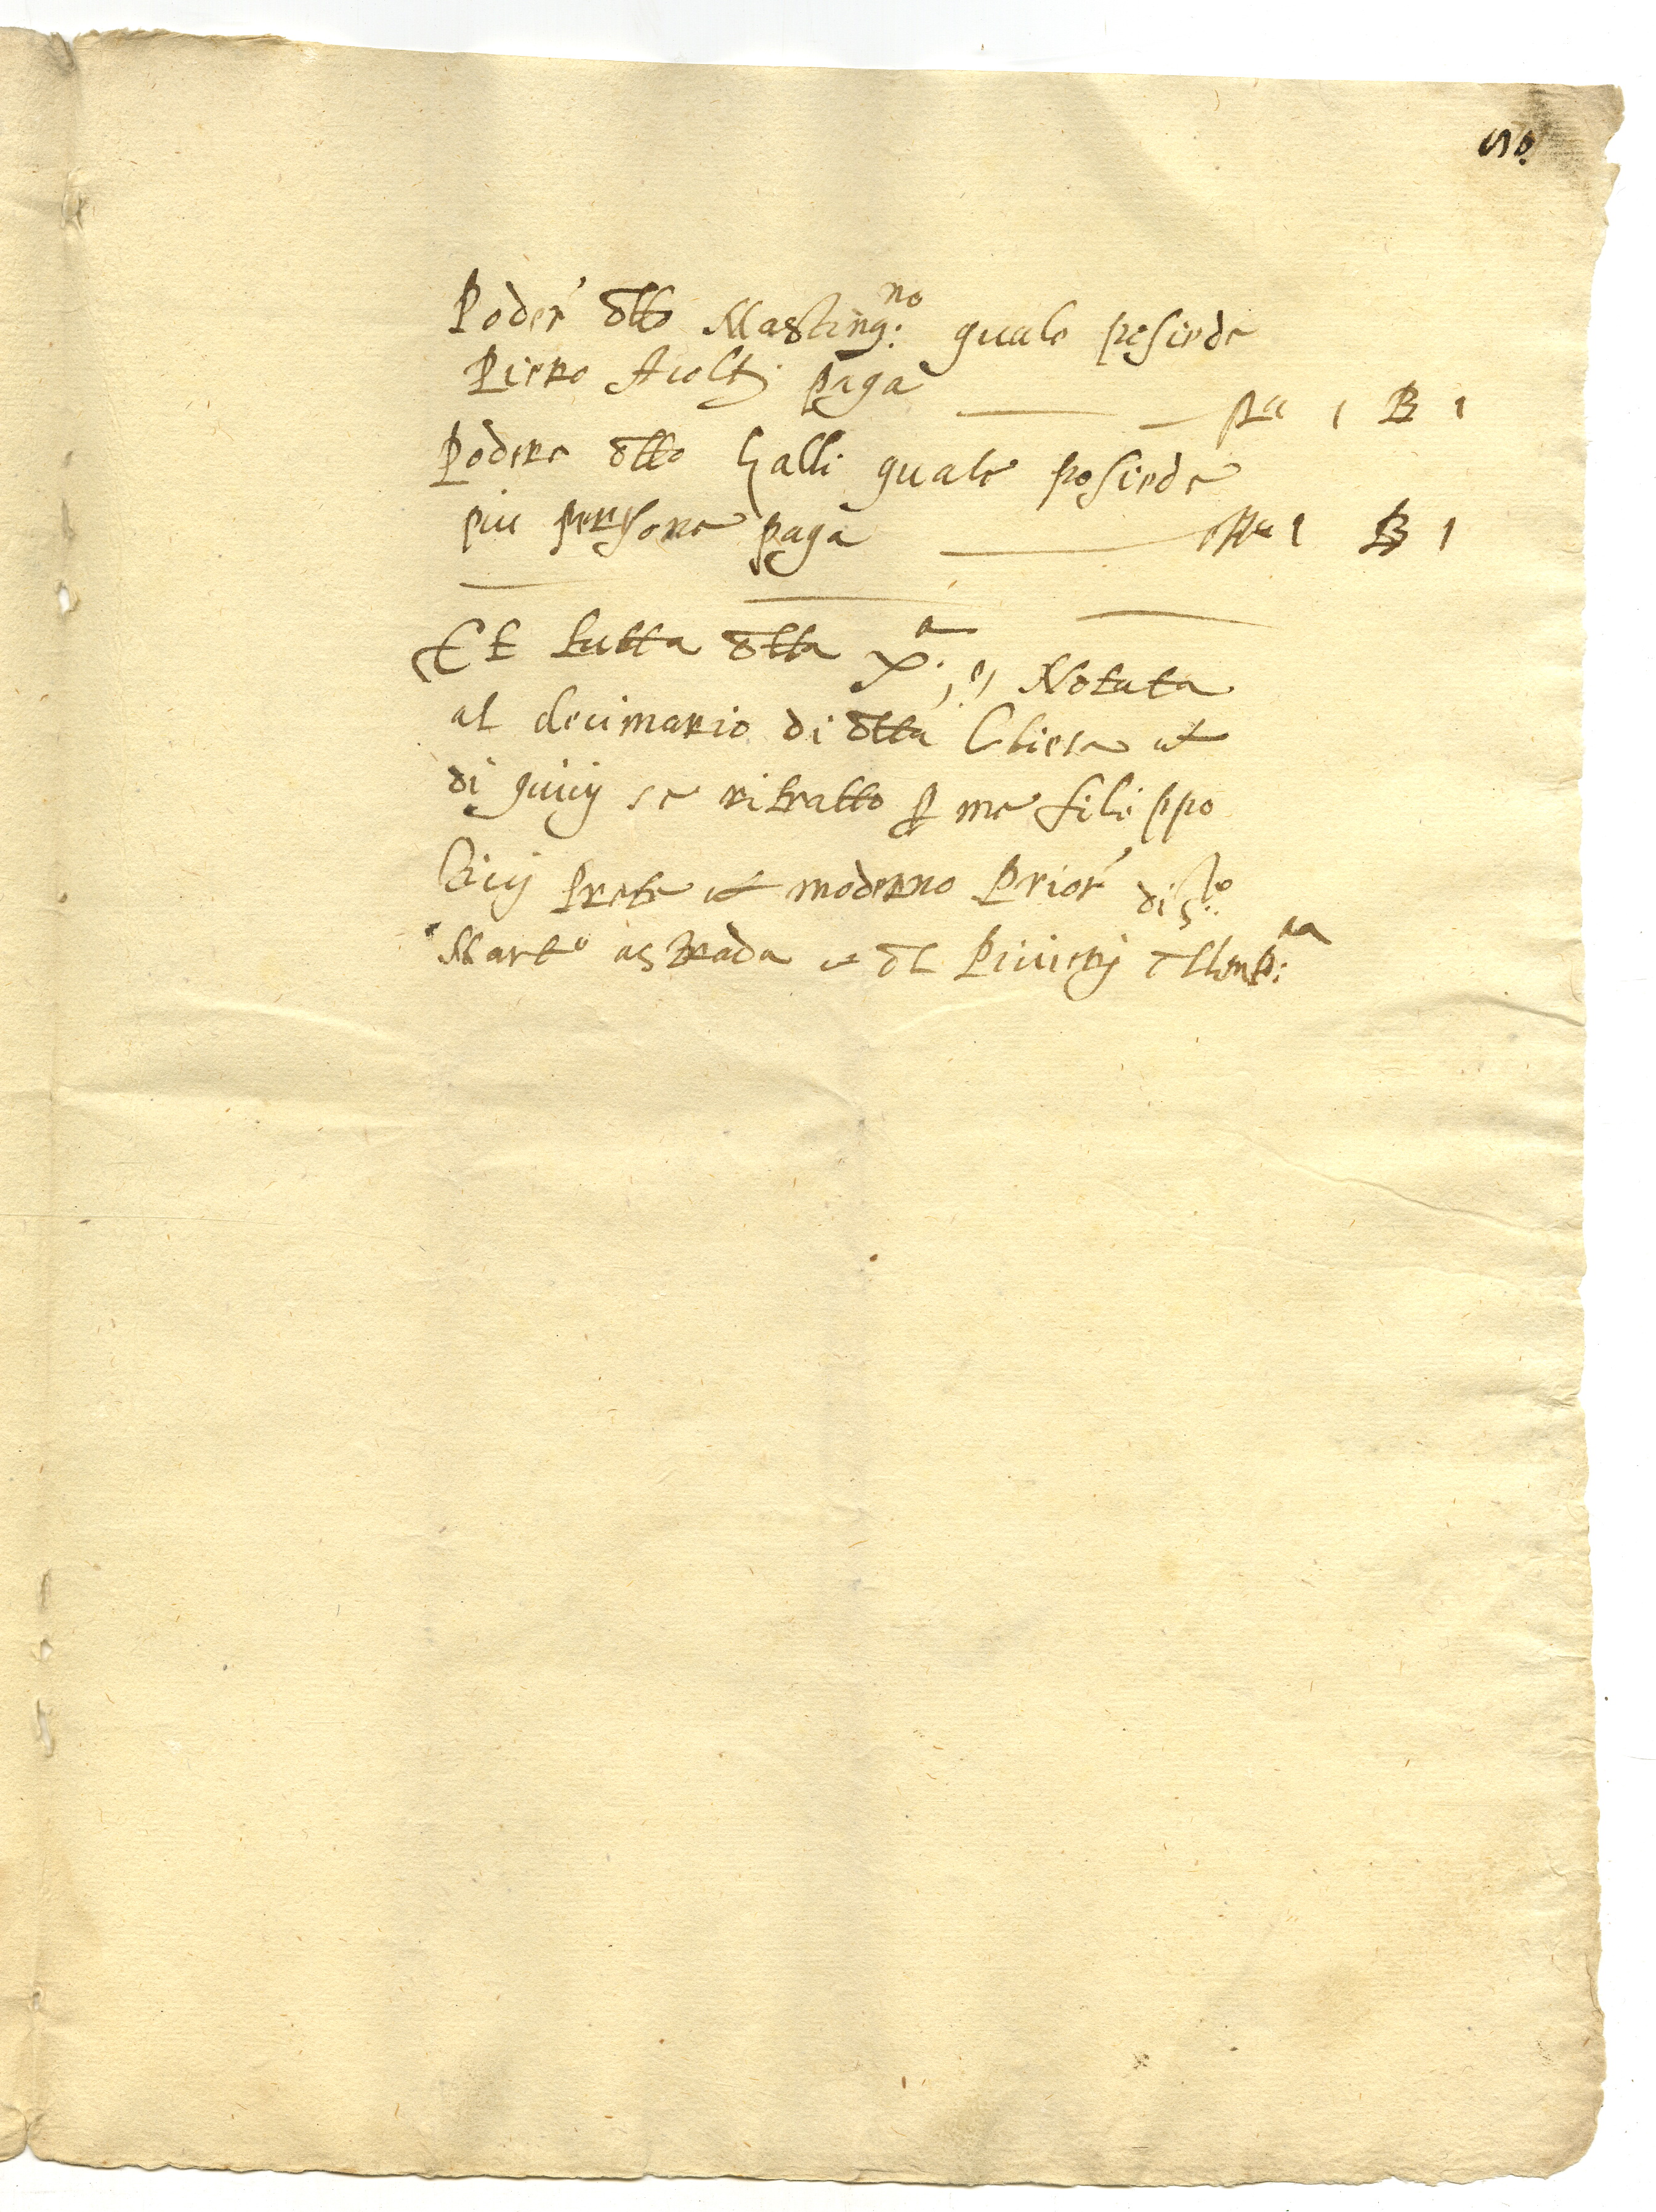 Poder' dtto Masting:no quale posiede
Piero Acolti paga —— Pa 1 B 1
Podere dtto Galli quale posiede
piu persone paga —— Pa 1 B 1
Et tutta dtta X.a, è, Notata
al decimario di dtta Chiesa et
di quiui se ritratto p me filippo
prete et moderno Prior' di S.to
Mart.o a strada